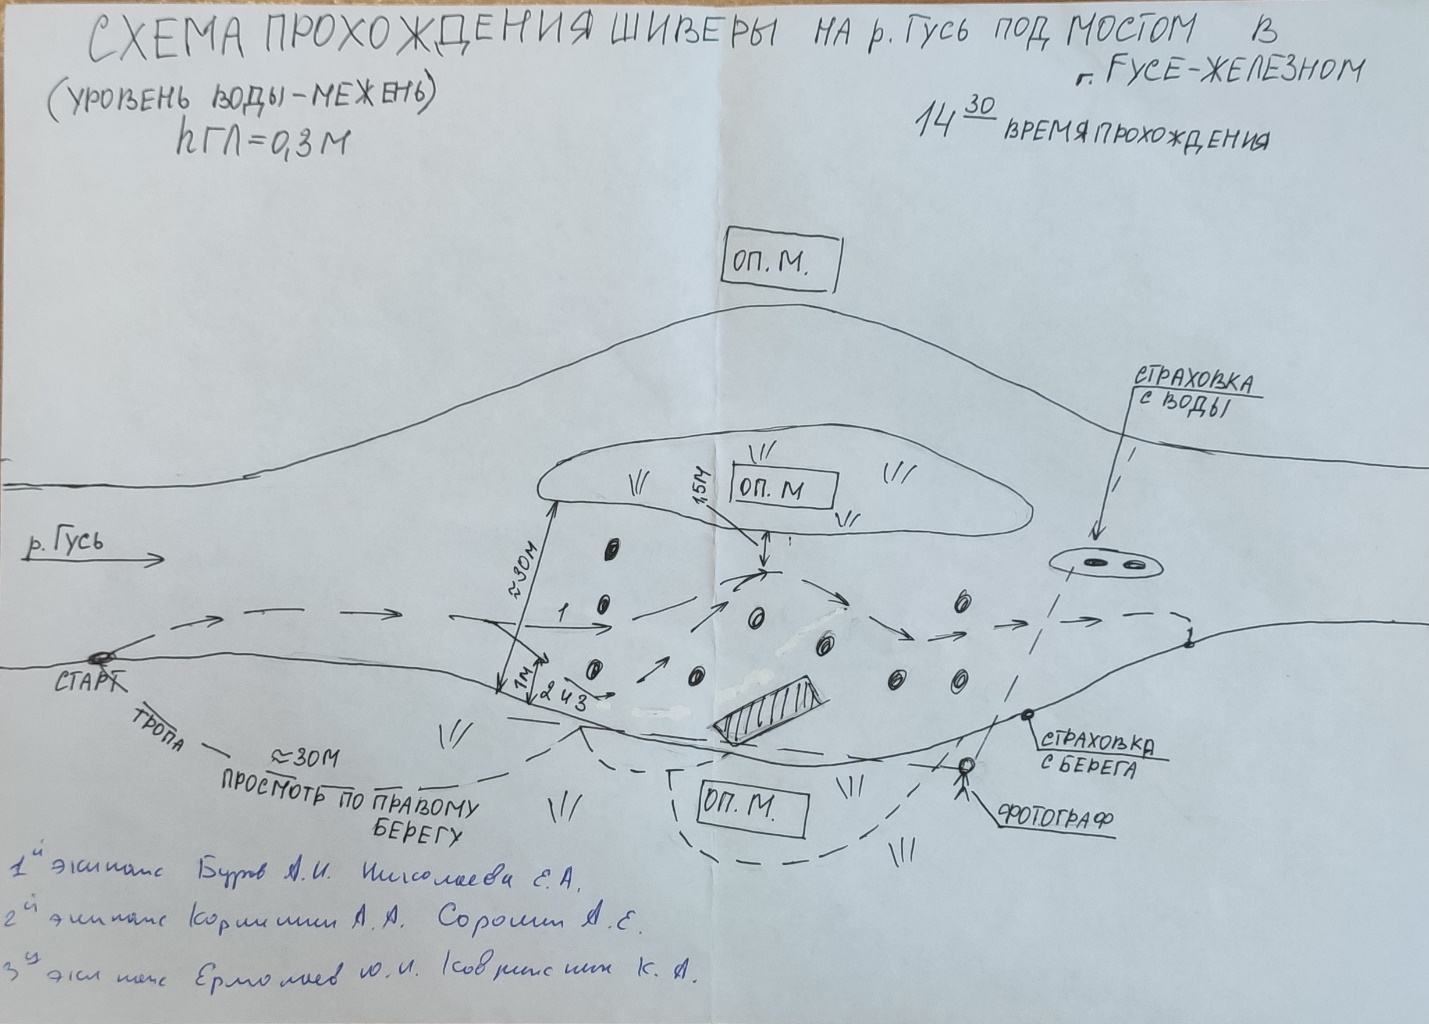 СХЕМА ПРОХОЖДЕНИЯ ШИВЕРЫ НА р. Гусь ПОД МОСТОМ В
г. ГУСЕ-ЖЕЛЕЗНОМ
(УРОВЕНЬ ВОДЫ-МЕЖЕНЬ)
hГЛ=0,3М
14 30 ВРЕМЯ ПРОХОЖДЕНИЯ
ОП. М.
СТРАХОВКА
С ВОДЫ
ОП. М
1,5М
р. Гусь
≈30М
1
1М
2 и 3
СТАРТ
ТРОПА
≈30М
ПРОСМОТР ПО ПРАВОМУ
БЕРЕГУ
ОП. М.
СТРАХОВКА
С БЕРЕГА
ФОТОГРАФ
1й экипаж Буров А.И. Николаева Е.А.
2й экипаж А.А. Сорокин А.Е.
3й экипаж Ермолаев Ю.И. К.А.